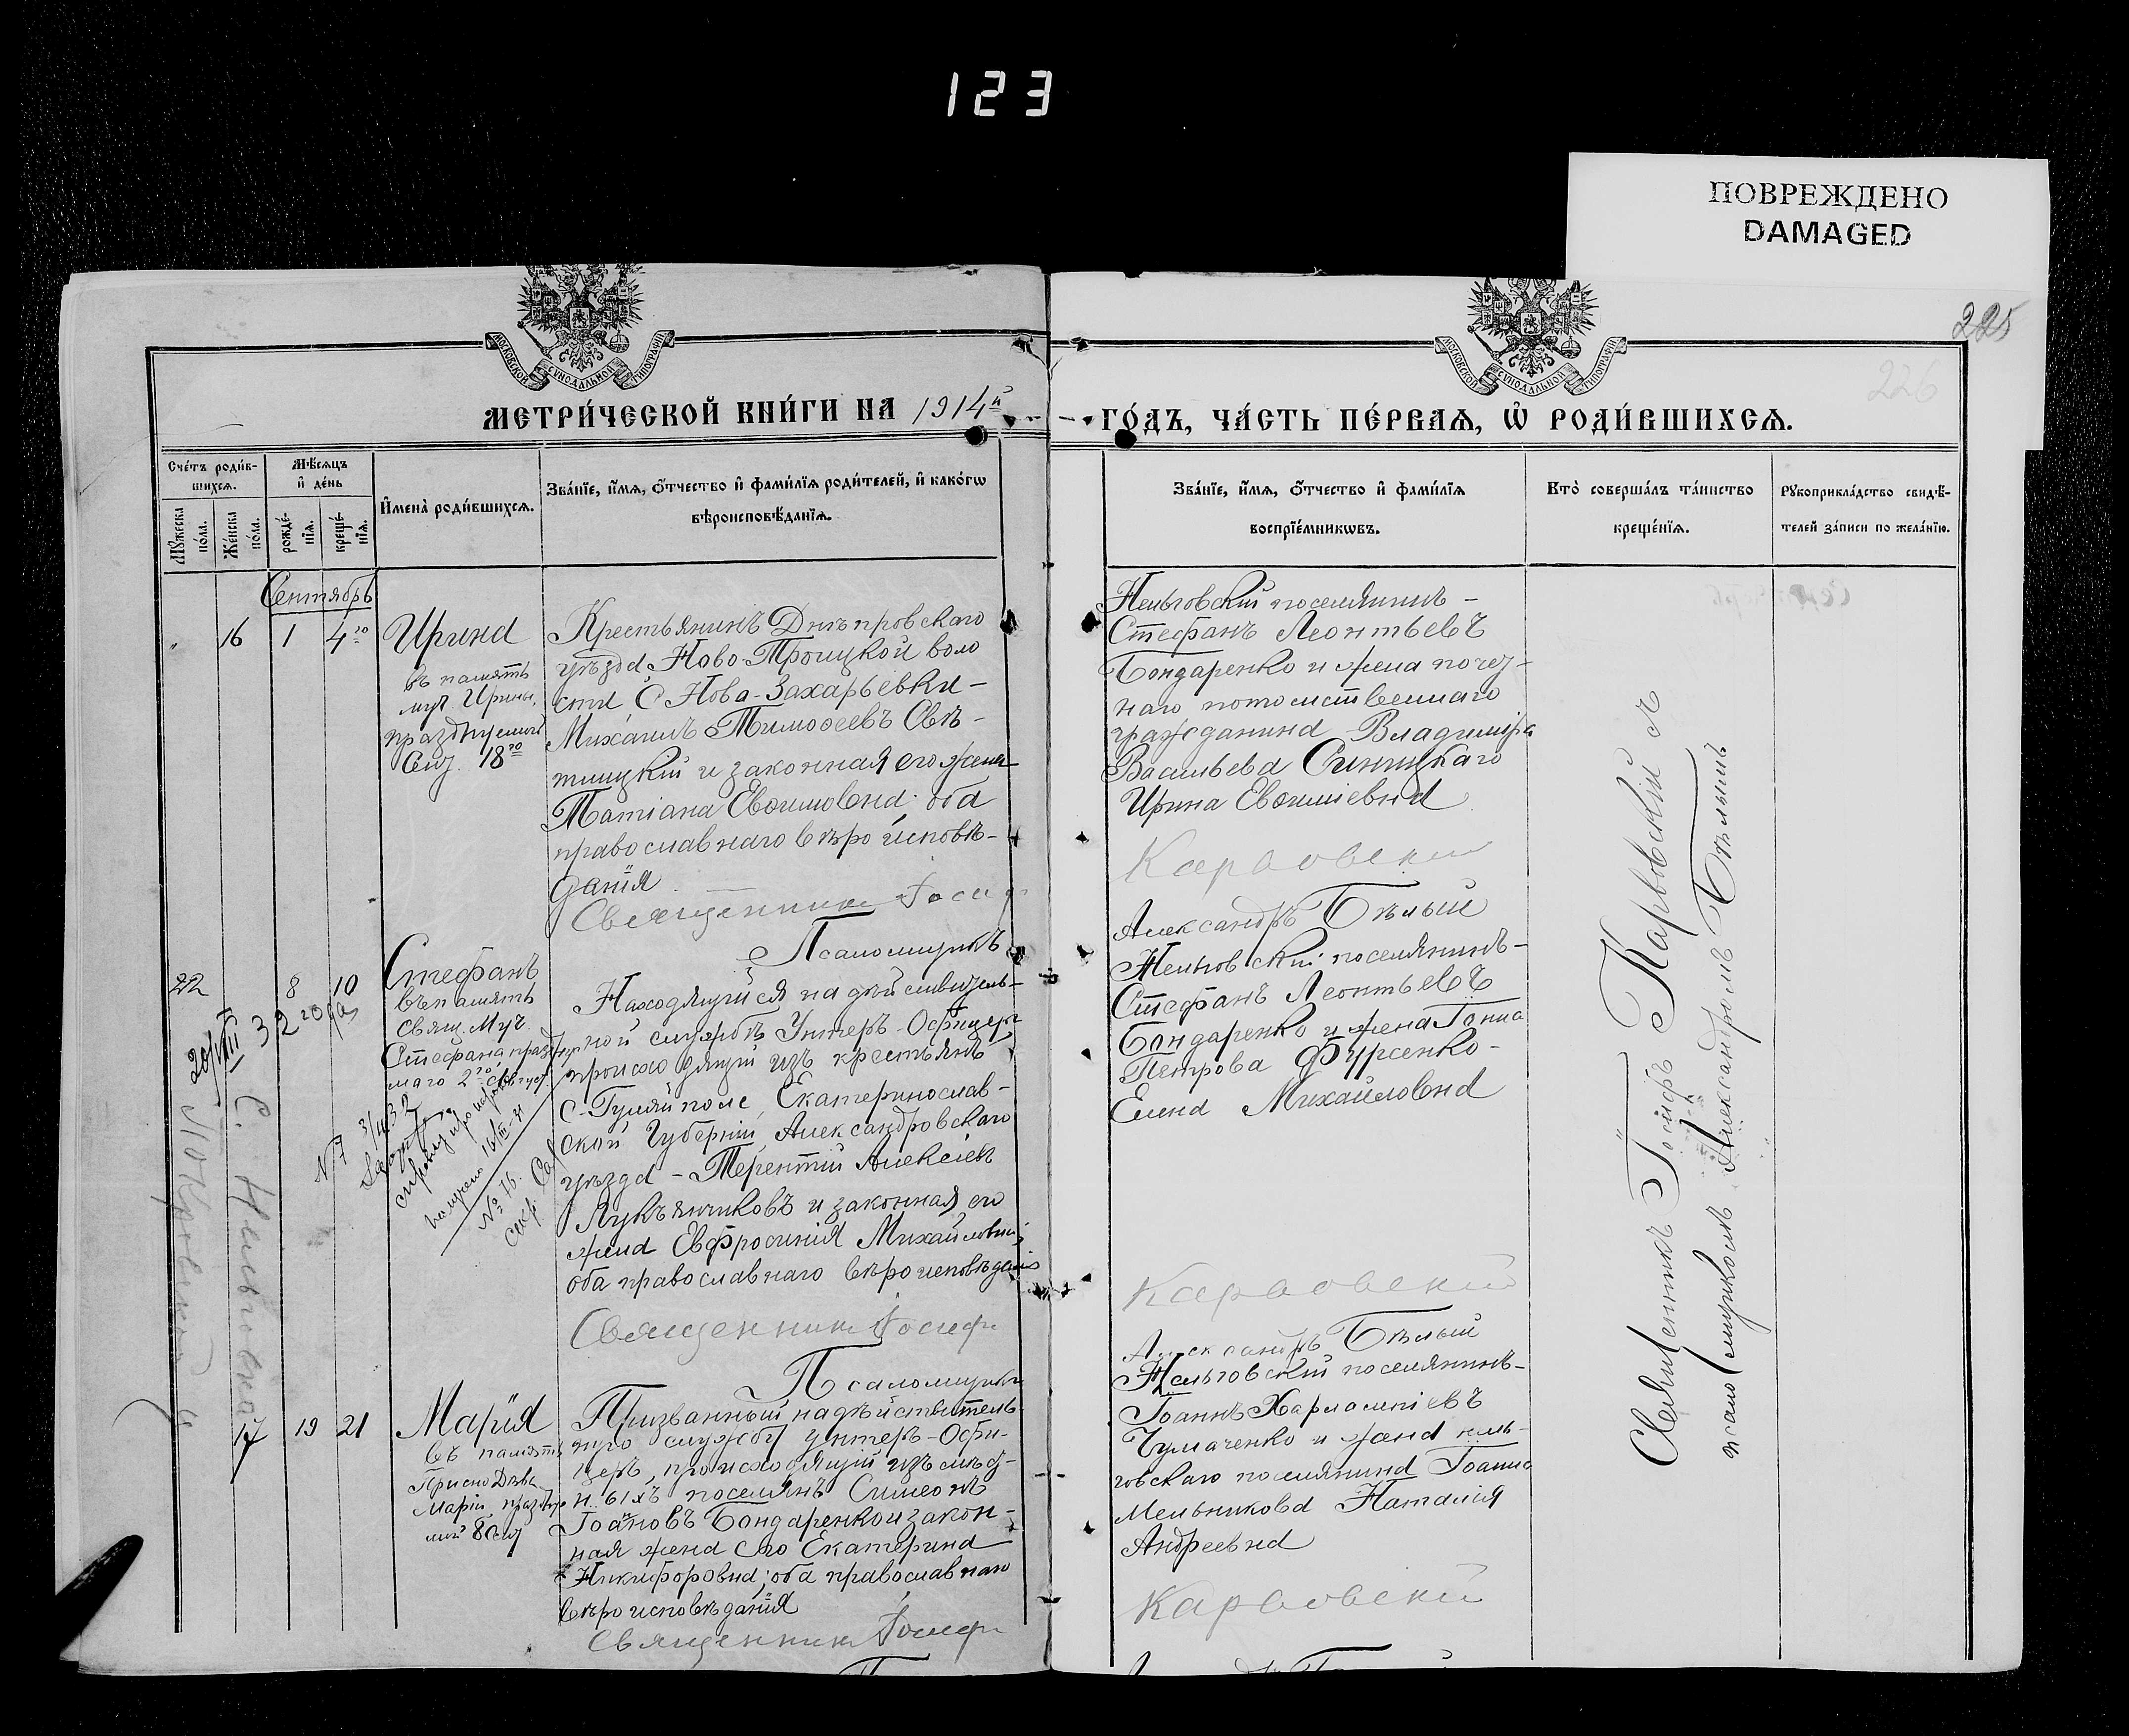 123
ПОВРЕЖДЕНО
DAMAGED
225
226
МОСКОВСКОЙ СУНОДАЛЬНОЙ ТИПОГРАФІИ
МОСКОВСКОЙ СУНОДАЛЬНОЙ ТИПОГРАФІИ
МЕТРИ́ЧЕСКОЙ КНИ́ГИ НА 1914й
ГО́ДЪ, ЧА́СТЬ ПЕ́РВАѦ, Ѡ҆ РОДИ́ВШИХСѦ.
Сче́тъ роди́в-
шихсѧ.
Мѣ́сѧцъ
и҆ де́нь
И҆мена̀ роди́вшихсѧ.
Зва́нїе, и҆́мѧ, ѻ҆́тчество и҆ фами́лїѧ роди́телей, и҆ како́гѡ
вѣроисповѣ́данїѧ.
Мꙋ́жеска по́ла.
Же́нска по́ла.
рожде́-
нїѧ.
креще́-
нїѧ.
Зва́нїе, и҆́мѧ, ѻ҆́тчество и҆ фами́лїѧ
воспрїе́мникѡвъ.
Кто̀ соверша́лъ та́инство
креще́нїѧ.
Рꙋкоприкла́дство свидѣ́-
телей за́писи по жела́нїю.
Сентябрь
16 1 4го
Ирина
въ память
муч. Ирины,
празднуемой
Сен. 18го
Крестьянинъ Днѣпровскаго
уѣзда Ново-Троицкой воло
сти, С Ново-Захарьевки-
Михаилъ Тимоѳеевъ Свѣ-
тицкій и законная его жена
Татіана Евѳимовна; оба
православнаго вѣроисповѣ-
данія
Священникъ Іосиф
Псаломщикъ
Нельговскій поселянинъ-
Стефанъ Леонтьевъ
Бондаренко и жена почет-
наго потомственнаго
гражданина Владиміра
Васильева Синицкаго
Ирина Евѳиміевна
Карвовскій
Александръ Бѣлый
22 8 10
Стефанъ
въ память
Свящ. Муч.
Стефана праздну
маго 2го Август.
Находящійся на дѣйствитель-
ной службѣ Унтеръ-Офицеръ
происходящій изъ крестьянъ
с. Гуляйполе, Екатеринослав-
ской Губерніи, Александровскаго
уѣзда - Терентій Алексіевъ
Лукъянчиковъ и законная его
жена Евфросинія Михайловна;
оба православнаго вѣроисповѣданія
Священникъ Іосиф
Псаломщикъ
Нельговскій поселянинъ-
Стефанъ Леонтьевъ
Бондаренко и жена Іоанна
Петрова Фурсенко-
Елена Михайловна
Карвовскій
Александръ Бѣлый
17 19 21
Марія
въ память
Присно Дѣвы
Маріи, праздну
мой 8 Сен
Призванный на дѣйствитель
ную службу унтеръ-Офи-
церъ, происходящій изъ мѣст-
н..ыхъ поселянъ Симеонъ
Іоановъ Бондаренко и закон-
ная жена его Екатерина
Никифоровна; оба православнаго
вѣроисповѣданія
Священникъ Іосиф
Нельговскій поселянинъ-
Іоаннъ Харлампіевъ
Чумаченко и жена нель-
говскаго поселянина Іоанна
Мельникова Наталія
Андреевна
Карвовскій
Священникъ Іосифъ Карвовскій съ
псаломщикомъ Александромъ Бѣлымъ